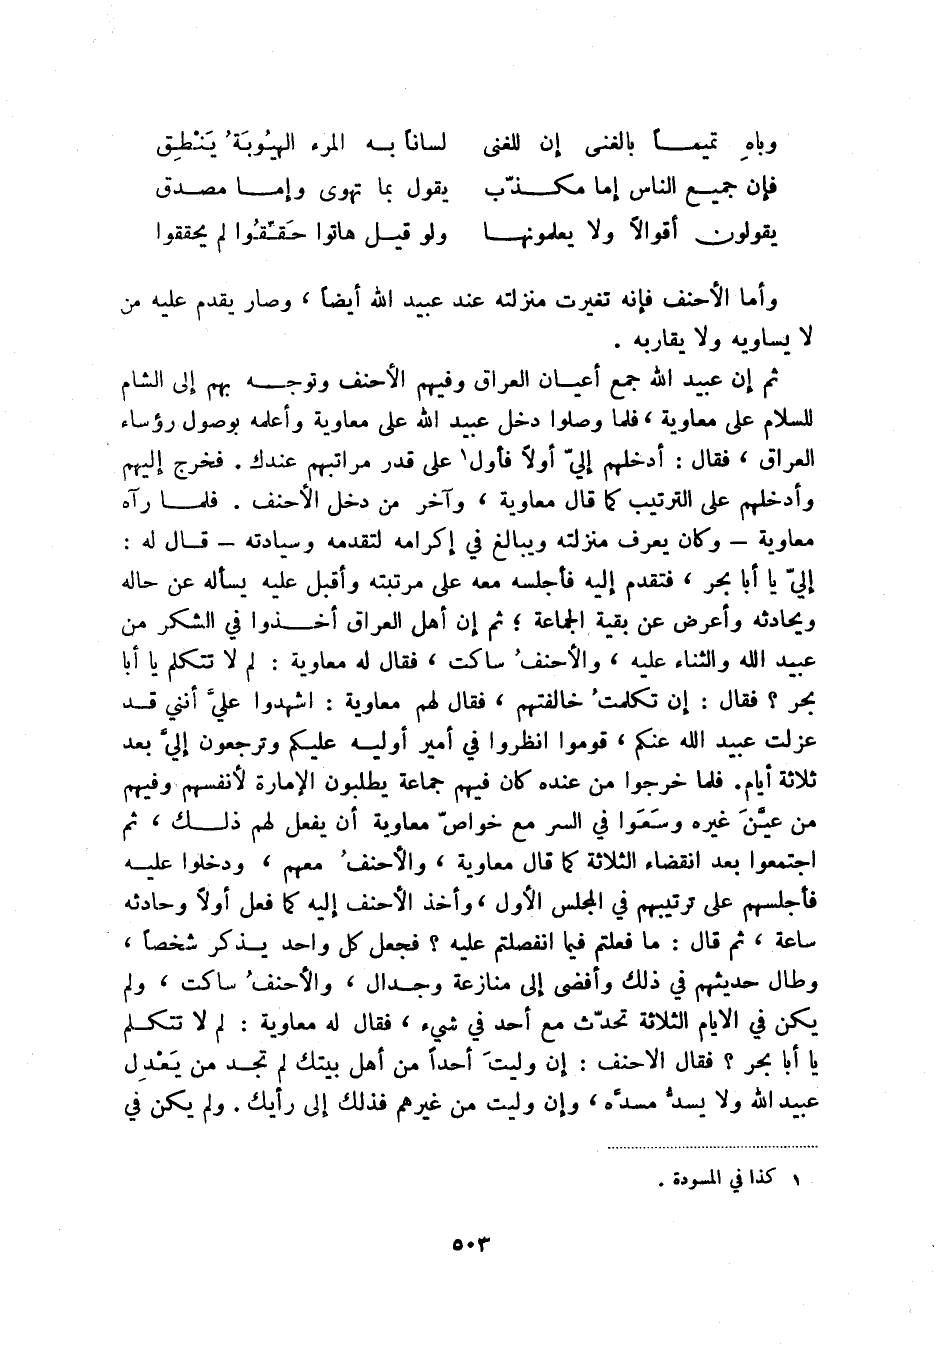 وباهِ تميمـــاً بالغنى إن للغنى لساناً بـه المرء الهيُوبَةُ يَنْطِق
فإن جميـع الناس إما مكـــذّب يقول بما تهوى وإمـــا مصـدق
يقولون أقوالاً ولا يعلمونهـــا ولو قيـل هاتوا حَقِّقُوا لم يحققوا
وأما الأحنف فإنه تغيرت منزلته عند عبيد الله أيضاً ، وصار يقدم عليه من
لا يساويه ولا يقاربه .
ثم إن عبيد الله جمع أعيـان العراق وفيهم الأحنف وتوجـــه بهم إلى الشام
للسلام على معاوية ، فلما وصلوا دخل عبيد الله على معاوية وأعلمه بوصول رؤساء
العراق ، فقال : أدخلهم إليّ أولاً فأول١ على قدر مراتبهم عندك . فخرج إليهم
وأدخلهم على الترتيب كما قال معاوية ، وآخر من دخل الأحنف . فلمـــا رآه
معاوية – وكان يعرف منزلته ويبالغ في إكرامه لتقدمه وسيادته – قـال له :
إليّ يا أبا بحر ، فتقدم إليه فأجلسه معه على مرتبته وأقبل عليه يسأله عن حاله
ويحادثه وأعرض عن بقية الجماعة ؛ ثم إن أهل العراق أخـــذوا في الشكر من
عبيد الله والثناء عليه ، والأحنفُ ساكت ، فقال له معاوية : لم لا تتكلم يا أبا
بحر ؟ فقال : إن تكلمتُ خالفتهم ، فقال لهم معاوية : اشهدوا عليَّ أنني قـد
عزلت عبيد الله عنكم ، قوموا انظروا في أمير أوليـه عليكم وترجعون إليَّ بعد
ثلاثة أيام. فلما خرجوا من عنده كان فيهم جماعة يطلبون الإمارة لأنفسهم وفيهم
من عيَّنَ غيره وسَعَوا في السر مع خواصّ معاوية أن يفعل لهم ذلـــك ، ثم
اجتمعوا بعد انقضاء الثلاثة كما قال معاوية ، والأحنفُ معهم ، ودخلوا عليـه
فأجلسهم على ترتيبهم في المجلس الأول ، وأخذ الأحنف إليه كما فعل أولاً وحادثه
ساعة ، ثم قال : ما فعلتم فيما انفصلتم عليه ؟ فجعل كل واحد يـذكر شخصاً ،
وطال حديثهم في ذلك وأفضى إلى منازعة وجـدال ، والأحنفُ ساكت ، ولم
يكن في الايام الثلاثة تحدّث مع أحد في شيء ، فقال له معاوية : لم لا تتكـلم
يا أبا بحر ؟ فقال الاحنف : إن وليتَ أحداً من أهل بيتك لم تجـد من يَعْدِل
عبيد الله ولا يسدُّ مسدَّه ، وإن وليت من غيرهم فذلك إلى رأيك . ولم يكن في
١ كذا في المسودة .
٥٠٣